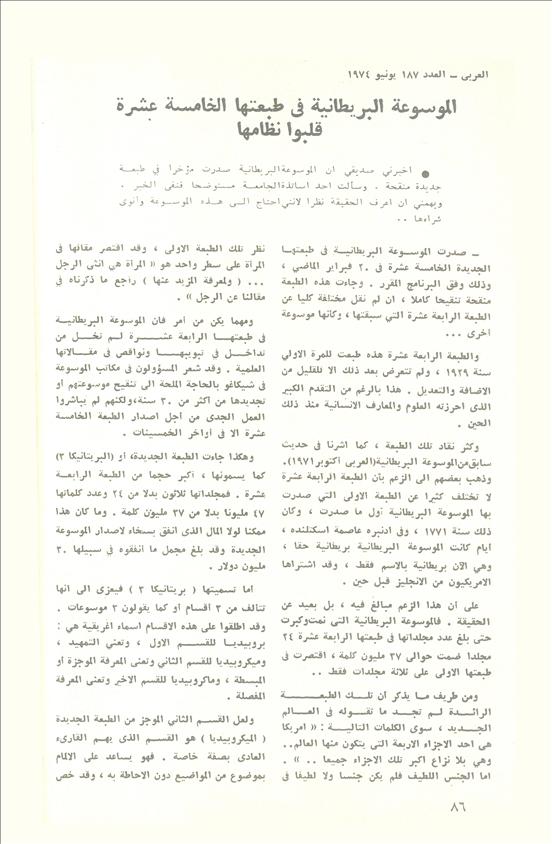 العربي - العدد ١٨٧ يونيو ١٩٧٤
الموسوعة البريطانية فى طبعتها الخامسة عشرة
قلبوا نظامها
● اخبرني صديقي ان الموسوعة البريطانية صدرت مؤخرا في طبعة
جديدة منقحة . وسألت احد اساتذة الجامعة مستوضحا فنفى الخبر .
ويهمني ان اعرف الحقيقة نظرا لانني احتاج الى هذه الموسوعة وانوي
شراءها ..
ـ صدرت الموسوعة البريطانية فى طبعتها
الجديدة الخامسة عشرة فى ٢٠ فبراير الماضي ،
وذلك وفق البرنامج المقرر . وجاءت هذه الطبعة
منقحة تنقيحا كاملا ، ان لم نقل مختلفة كليا عن
الطبعة الرابعة عشرة التي سبقتها ، وكأنها موسوعة
اخرى ...
والطبعة الرابعة عشرة هذه طبعت للمرة الاولي
سنة ١٩٢٩ ، ولم تتعرض بعد ذلك الا للقليل من
الاضافة والتعديل . هذا بالرغم من التقدم الكبير
الذى احرزته العلوم والمعارف الانسانية منذ ذلك
الحين .
وكثر نقاد تلك الطبعة ، كما اشرنا في حديث
سابق من الموسوعة البريطانية (العربي أكتوبر ١٩٧١).
وذهب بعضهم الى الزعم بأن الطبعة الرابعة عشرة
لا تختلف كثيرا عن الطبعة الاولى التي صدرت
بها الموسوعة البريطانية أول ما صدرت ، وكان
ذلك سنة ١٧٧١ ، وفى ادنبره عاصمة اسكتلنده ،
أيام كانت الموسوعة البريطانية بريطانية حقا ،
وهي الآن بريطانية بالاسم فقط ، وقد اشتراها
الامريكيون من الانجليز قبل حين .
على ان هذا الزعم مبالغ فيه ، بل بعيد عن
الحقيقة . فالموسوعة البريطانية التى نمت وكبرت
حتى بلغ عدد مجلداتها فى طبعتها الرابعة عشرة ٢٤
مجلدا ضمت حوالى ٣٧ مليون كلمة ، اقتصرت في
طبعتها الاولى على ثلاثة مجلدات فقط ..
ومن طريف ما يذكر ان تلك الطبعة
الرائدة لم تجد ما تقوله فى العالم
الجديد ، سوى الكلمات التالية : « امريكا
هى احد الاجزاء الاربعة التى يتكون منها العالم ..
وهي بلا نزاع اكبر تلك الاجزاء جميعا .. » .
اما الجنس اللطيف فلم يكن جنسا ولا لطيفا فى
نظر تلك الطبعة الاولى ، وقد اقتصر مقالها فى
المرأة على سطر واحد هو « المرأة هى انثى الرجل
... ( ولمعرفة المزيد عنها ) راجع ما ذكرناه في
مقالنا عن الرجل » .
ومهما يكن من أمر فان الموسوعة البريطانية
في طبعتها الرابعة عشرة لم تخل من
تداخل فى تبويبها ونواقص فى مقالاتها
العلمية . وقد شعر المسؤولون فى مكاتب الموسوعة
في شيكاغو بالحاجة الملحة الى تنقيح موسوعتهم أو
تجديدها من أكثر من ٣٠ سنة،ولكنهم لم يباشروا
العمل الجدى من أجل اصدار الطبعة الخامسة
عشرة الا فى أواخر الخمسينات .
وهكذا جاءت الطبعة الجديدة، أو (البريتانيكا ٣)
كما يسمونها ، أكبر حجما من الطبعة الرابعة
عشرة . فمجلداتها ثلاثون بدلا من ٢٤ وعدد كلماتها
٤٧ مليونا بدلا من ٣٧ مليون كلمة . وما كان هذا
ممكنا لولا المال الذى انفق بسخاء لاصدار الموسوعة
الجديدة وقد بلغ مجمل ما انفقوه في سبيلها ٣٠
مليون دولار .
أما تسميتها ( بريتانيكا ٣ ) فيعزى الى انها
تتالف من ٣ اقسام أو كما يقولون ٣ موسوعات .
وقد اطلقوا على هذه الاقسام اسماء اغريقية هي :
بروبيديا للقسم الاول ، وتعني التمهيد ،
وميكروبيديا للقسم الثاني وتعنى المعرفة الموجزة أو
المبسطة ، وماكروبيديا للقسم الاخير وتعنى المعرفة
المفصلة .
ولعل القسم الثاني الموجز من الطبعة الجديدة
( الميكروبيديا ) هو القسم الذى يهم القارىء
العادى بصفة خاصة . فهو يساعد على الالمام
بموضوع من المواضيع دون الاحاطة به ، وقد خص
٨٦